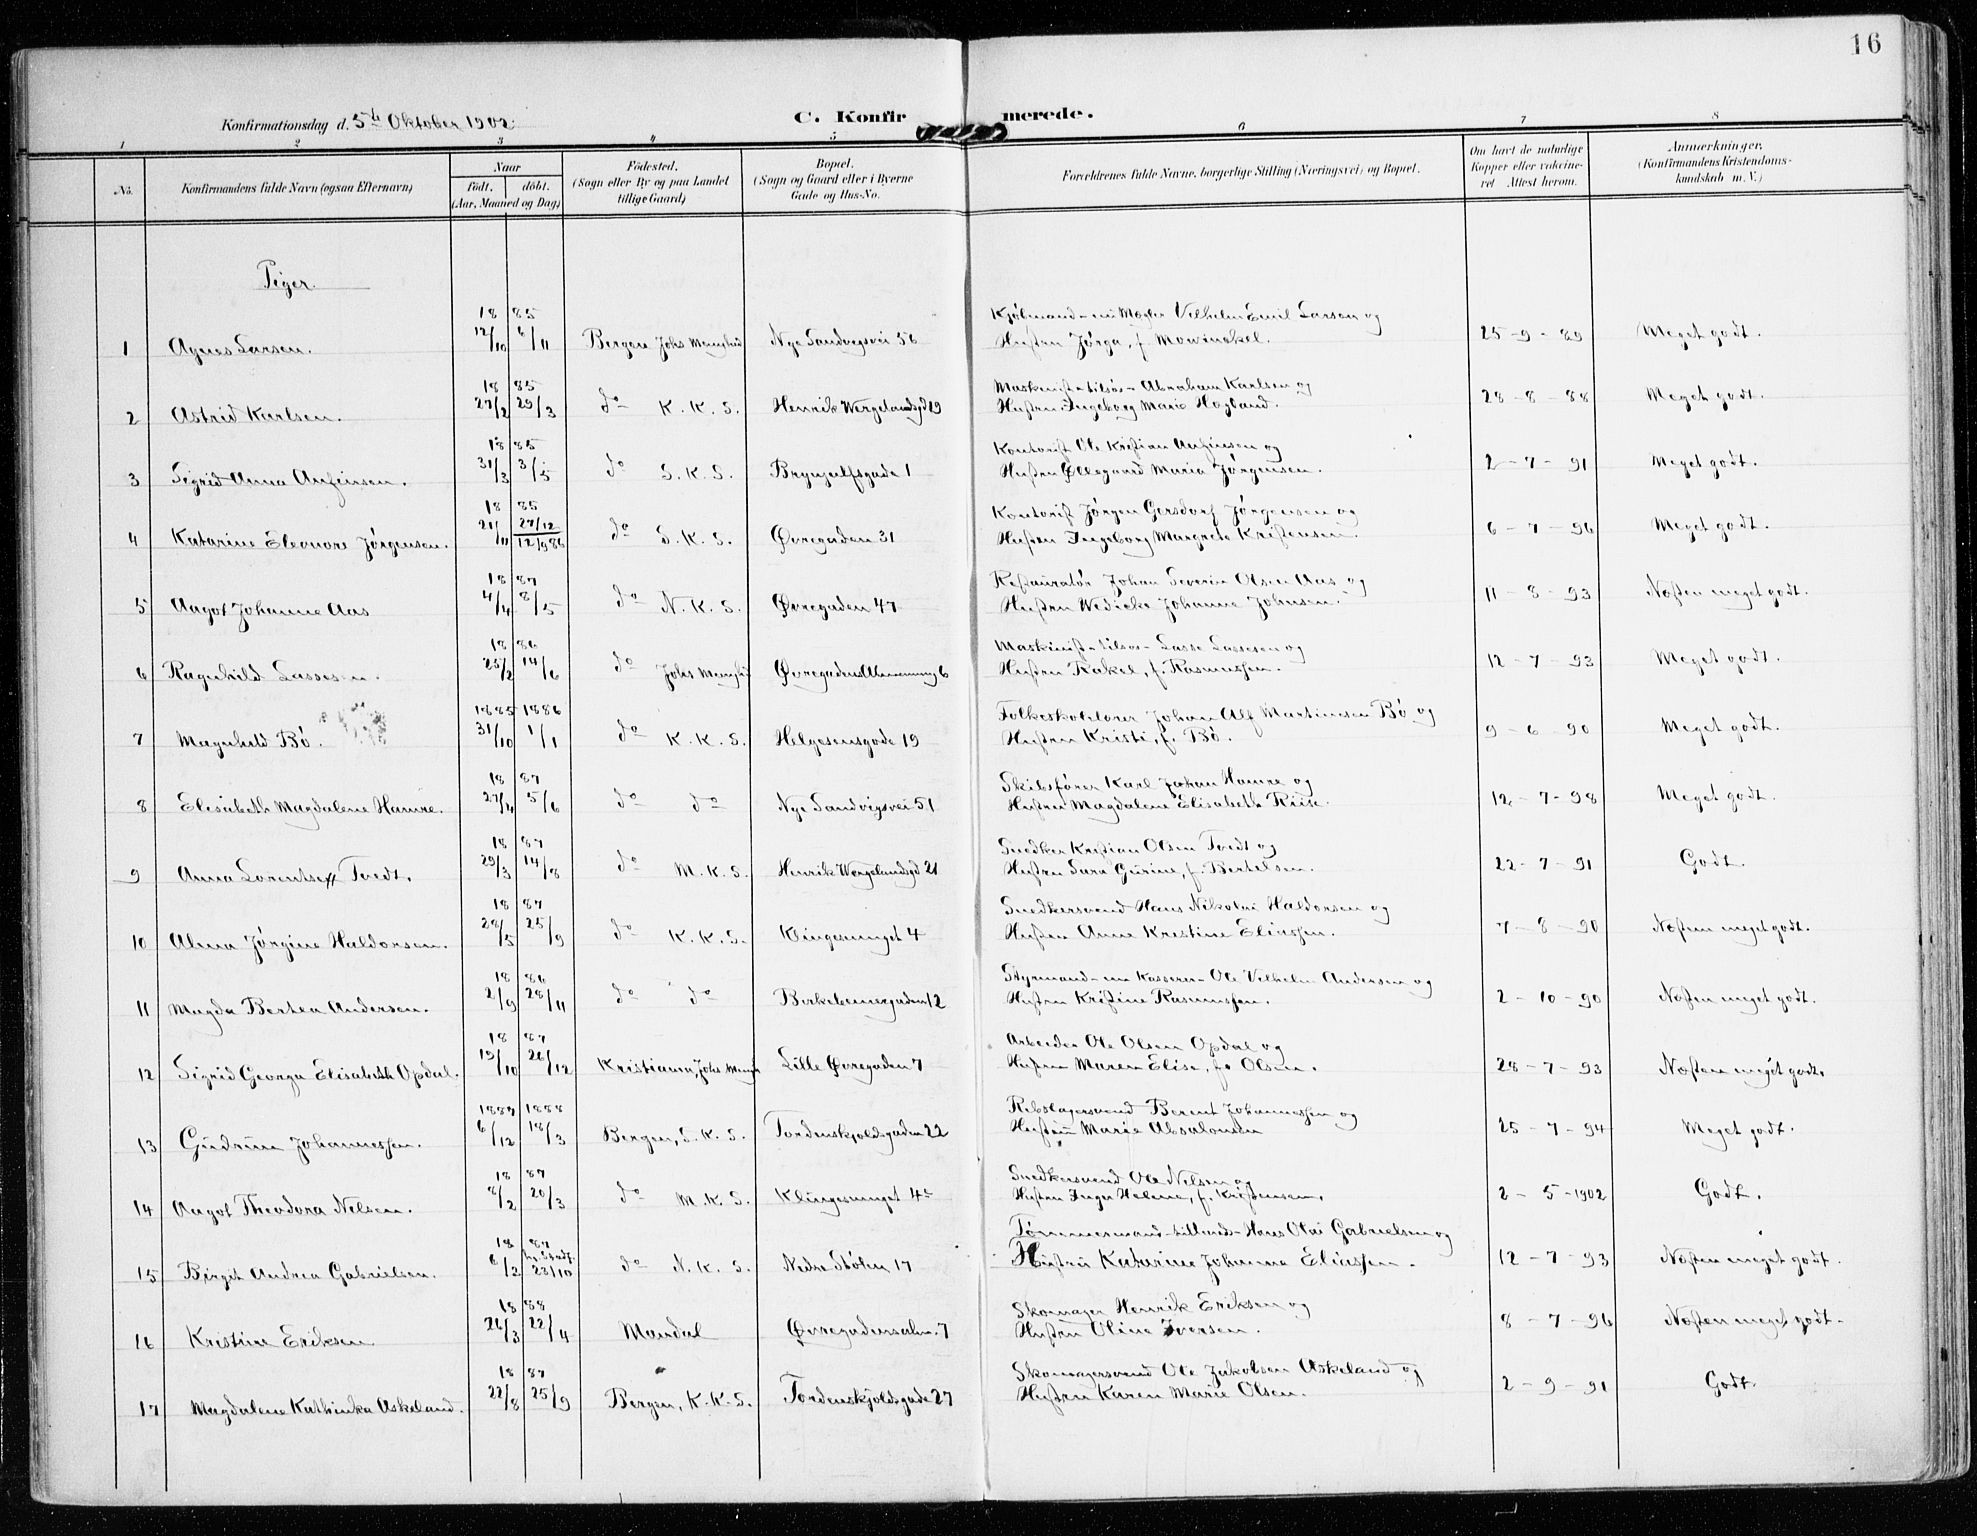 16
Konfirmationsdag d. 5te Oktober 1902.
C. Konfirmerede.
1 2 3 4 5 6 7 8
No. Konfirmandens fulde Navn (ogsaa Efternavn) Naar født, døbt. (Aar, Maaned og Dag) Fødested. (Sogn eller By og paa Landet tillige Gaard) Bopæl. (Sogn og Gaard eller i Byerne Gade og Hus-No. Forældrenes fulde Navne, borgerlige Stilling (Næringsvei) og Bopæl. Om havt de naturlige Kopper eller vakcineret. Attest herom. Anmerkninger. (Konfirmandens Kristendomskundskab m. V.)
Piger.
18 85 Kjøbmand - nu Mægler Vilhelm Emil Larsen og
1 Agnes Larsen. 12/10 6/11 Bergen Johs Menighed Nye Sandvigsvei 56 Hustru Jørga, f. Mowinckel. 25-9-89 Meget godt.
18 85 Maskinist tilsøs - Abraham Karlsen og
2 Astrid Karlsen. 27/2 29/3 do K. K. S. Henrik Wergelandsgd 19 Hustru Ingeborg Marie Hogland. 28-8-88 Meget godt.
18 85 Kontorist Ole Kristian Anfinsen og
3 Sigrid Anna Anfinsen. 31/3 3/5 do S. K. S. Brynjulfsgade 1 Hustru Øllegaard Maria Jørgensen. 2-7-91 Meget godt.
18 85 Kontorist Jørgen Gersdorf Jørgensen og
4 Katarine Eleonore Jørgensen. 21/11 27/12 12/9 86 do S. K. S. Øvregaden 31 Hustru Ingeborg Margrete Kristensen. 6-7-96 Meget godt.
18 87 Restauratør Johan Severin Olsen Aas og
5 Aagot Johanne Aas 4/4 8/5 do N. K. S. Øvregaden 47 Hustru Wedicke Johanne Johnsen. 11-8-93 Næsten meget godt.
18 86 Maskinist - tilsøs - Lasse Lassesen og
6 Ragnhild Lassesen. 25/2 14/6 do Johs Menighed Øvregadens Almenning 6 Hustru Rakel, f. Rasmussen. 12-7-93 Meget godt.
1885 1886 Folkeskolelærer Johan Alf Martinsen Bø og
7 Magnhild Bø. 31/10 1/1 do K. K. S. Helgesensgade 19 Hustru Kristi, f. Bø. 9-6-90 Meget godt.
18 87 Skibsfører Karl Johan Hamre og
8 Elisabeth Magdalene Hamre. 27/4 5/6 do do Nye Sandvigsvei 51 Hustru Magdalene Elisabeth Riise. 12-7-98 Meget godt.
18 87 Snedker Kristian Olsen Tvedt og
9 Anna Lorentse Tvedt. 29/3 14/8 do M. K. S. Henrik Wergelandsgd 21 Hustru Sara Gurine, f. Bertelsen. 22-7-91 Godt.
18 87 Snedkersvend Hans Nikolai Haldorsen og
10 Alma Jørgine Haldorsen. 28/5 25/9 do K. K. S. Klingesmuget 4 Hustru Anne Kristine Eliassen. 7-8-90 Næsten meget godt.
18 86 Styrmand - nu Kasserer - Ole Vilhelm Andersen og
11 Magda Bertea Andersen. 2/9 28/11 do do Birkebeinergaden 12 Hustru Kristine Rasmussen. 2-10-90 Næsten meget godt.
18 87 Arbeider Ole Olsen Opdal og
12 Sigrid Georga Elisabeth Opdal. 19/10 26/12 Kristiania, Johs Mengh Lille Øvregaden 7 Hustru Maren Elise, f. Olsen. 28-7-93 Næsten meget godt.
1887 1888 Rebslagersvend Berent Johannessen og
13 Gudrun Johannessen. 6/12 18/3 Bergen, S. K. S. Tordenskjoldsgaden 22 Hustru Marie Absalonsen 25-7-94 Meget godt.
18 87 Snedkersvend Ole Nilsen og
14 Aagot Theodora Nilsen. 8/2 20/3 do M. K. S. Klingesmuget 4 Hustru Inger Helene, f. Kristensen. 2-5-1902 Godt.
18 87 Tømmermand - tillands - Hans Olai Gabrielsen og
15 Birgit Andrea Gabrielsen. 6/2 23/10 do N. K. S. Nedre Stølen 17 Hustru Katarina Johanna Eliassen. 12-7-93 Næsten meget godt.
18 88 Skomager Henrik Eriksen og
16 Kristine Eriksen 26/3 22/4 Mandal Øvregadensalm. 7 Hustru Oline Iversen. 8-7-96 Næsten meget godt.
18 87 Skomagersvend Ole Jakobsen Askeland og
17 Magdalene Kathinka Askeland. 22/8 25/9 Bergen, K. K. S. Tordenskjoldsgade 27 Hustru Karen Marie Olsen. 2-9-91 Godt.